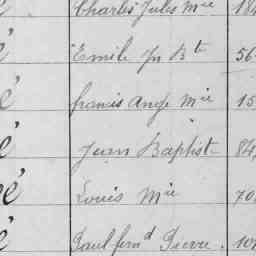 é Charles Jules Mie 18
é Emile Jn Bte 56
é francis Ange Mie 15
é Jean Baptist 84
é Louis Mie 70
é Paul fernd Pierre . 10